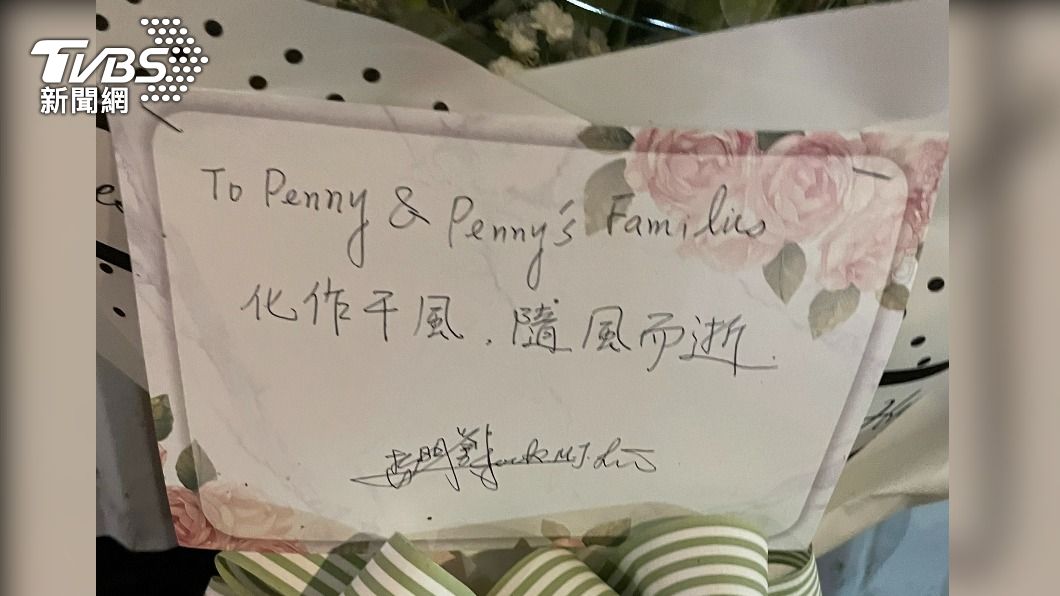 TVBS
新聞網
To Penny & Penny's Families
化作千風．隨風而逝．